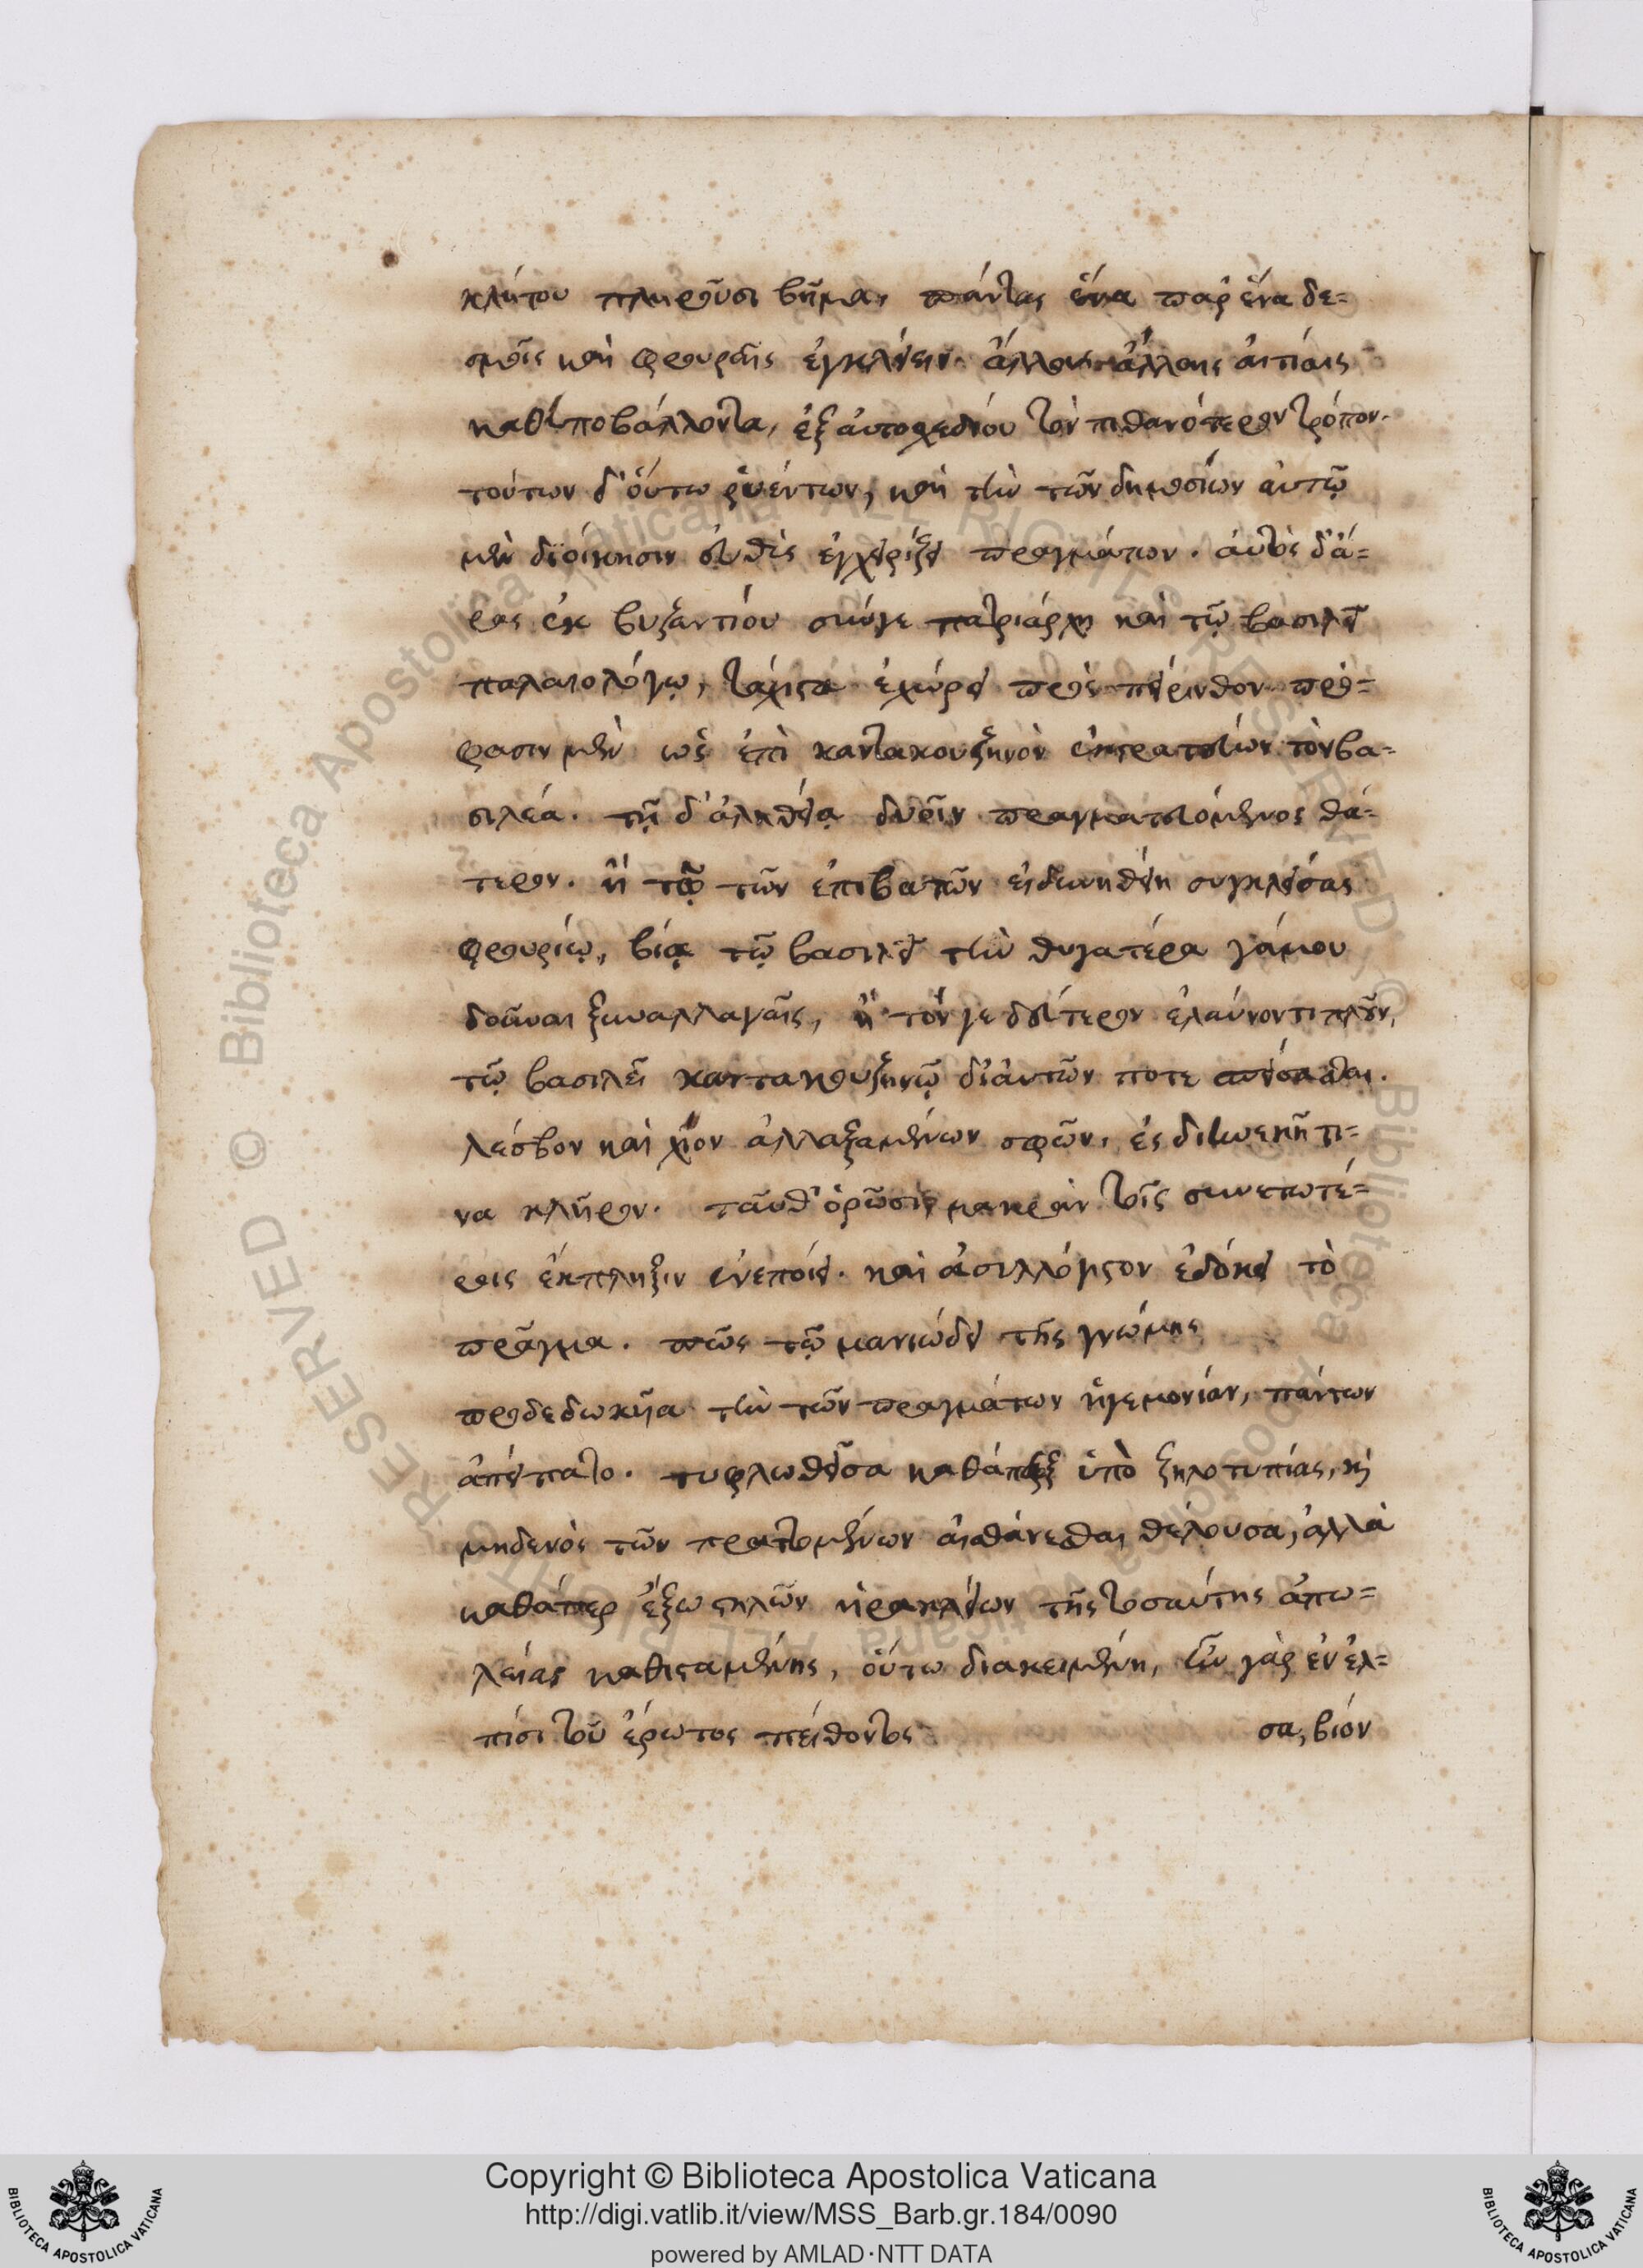 κλήτου πληροῦσι βῆμα, πάντας ἕνα παρ' ἕνα δε=
σμοῖς καὶ φρουραῖς ἐγκλείειν. ἄλλους ἄλλαις αἰτίαις
καθυποβάλλοντα, ἐξ αὐτοσχεδίου τὸν πιθανότερον τρόπον.
τούτων δ' οὕτω ῥυέντων, καὶ τὴν τῶν δημοσίων αὐτῷ
μὲν διοίκησιν αὖθις ἐγχειρίζει πραγμάτων. αὐτὸς δ' ἄ=
ρας ἐκ βυζαντίου σύν γε πατριάρχῃ καὶ τῷ βασιλεῖ
παλαιολόγῳ, τάχιστα ἐχώρει πρὸς πείρινθον πρό=
φασιν μὲν ὡς ἐπὶ καντακουζηνὸν ἐκστρατεύων τὸν βα=
σιλέα. τῇ δ' ἀληθείᾳ δυοῖν πραγματευόμενος θά=
τερον. ἢ τῷ τῶν ἐπιβατῶν εἰδωνηθείη συγκλείσας
φρουρίῳ, βίᾳ τῷ βασιλεῖ τὴν θυγατέρα γάμου
δοῦναι ξυναλλαγαῖς, ἢ τόν γε δεύτερον ἐλαύνοντι πλοῦν,
τῷ βασιλεῖ καντακουζηνῷ δι' αὐτῶν ποτε
λέσβον καὶ χίον ἀλλαξαμένων σφῶν, ἐς διηνεκῆ τι=
να κλῆρον. ταῦθ' ὁρῶσι μακρὰν τοῖς συνετωτέ=
ροις ἔκπληξιν ἐνεποίει. καὶ ἀσυλλόγιστον ἐδόκει τὸ
πρᾶγμα. πῶς τῷ μανιώδει τῆς γνώμης
προδεδωκυῖα τὴν τῶν πραγμάτων ἡγεμονίαν, πάντων
ἀπείπατο. τυφλωθεῖσα καθάπαξ ὑπὸ ζηλοτυπίας, κὶ
μηδενὸς τῶν πραττομένων αἰσθάνεσθαι θέλουσα, ἀλλὰ
καθάπερ ἔξω στηλῶν ἡρακλείων τῆς τοσαύτης ἀπω=
λείας καθισταμένης, οὕτω διακειμένη, ἦν γὰρ ἐν ἐλ=
πίσι τοῦ ἔρωτος πείθοντος σα, βίον
Copyright © Biblioteca Apostolica Vaticana
http://digi.vatlib.it/view/MSS_Barb.gr.184/0090
powered by AMLAD·NTT DATA